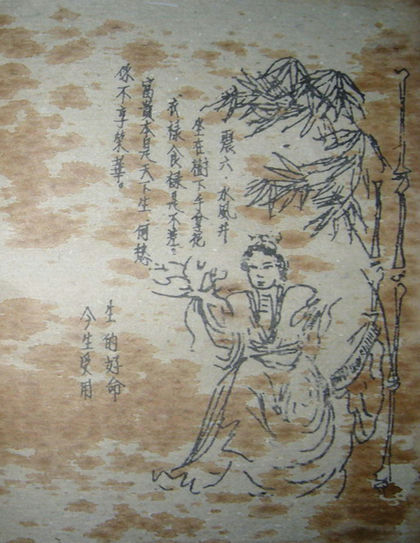 震六·水風井
坐在樹下手拿花
衣祿食祿是不差。
富貴本是天下生 何愁
你不享榮華。
生的好命
今生受用